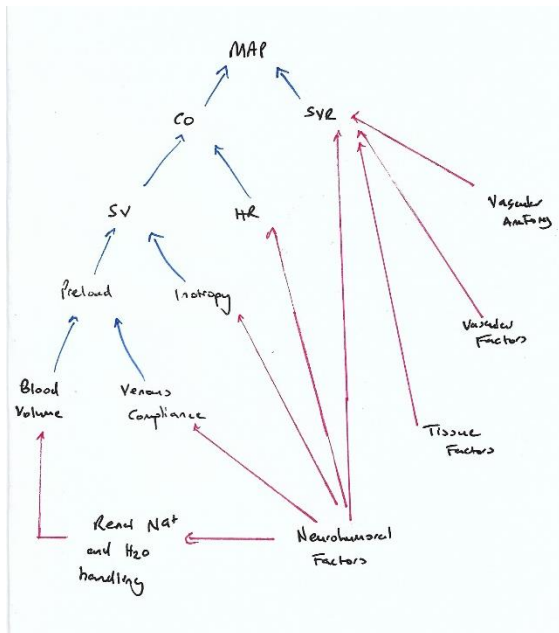 MAP
CO
SVR
SV
HR
Vascular
Anatomy
Preload
Inotropy
Vascular
Factors
Blood
Volume
Venous
Compliance
Tissue
Factors
Renal Na⁺
and H₂O
handling
Neurohumoral
Factors